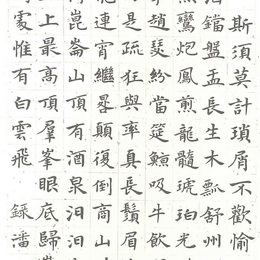 斯須莫計瑣屑不歡愉
鐺盤盂長生木瓢舒州
鸞炮鳳煎龍髓琥珀光
趙瑟紛當筵鯨吸牛飲
是疏狂與率真長鬚眉
連宵繼晷顛復倒高
崙山頂有酒泉汩汩
上最高頂羣峯眼底歸
處惟有白雲飛 錄潘